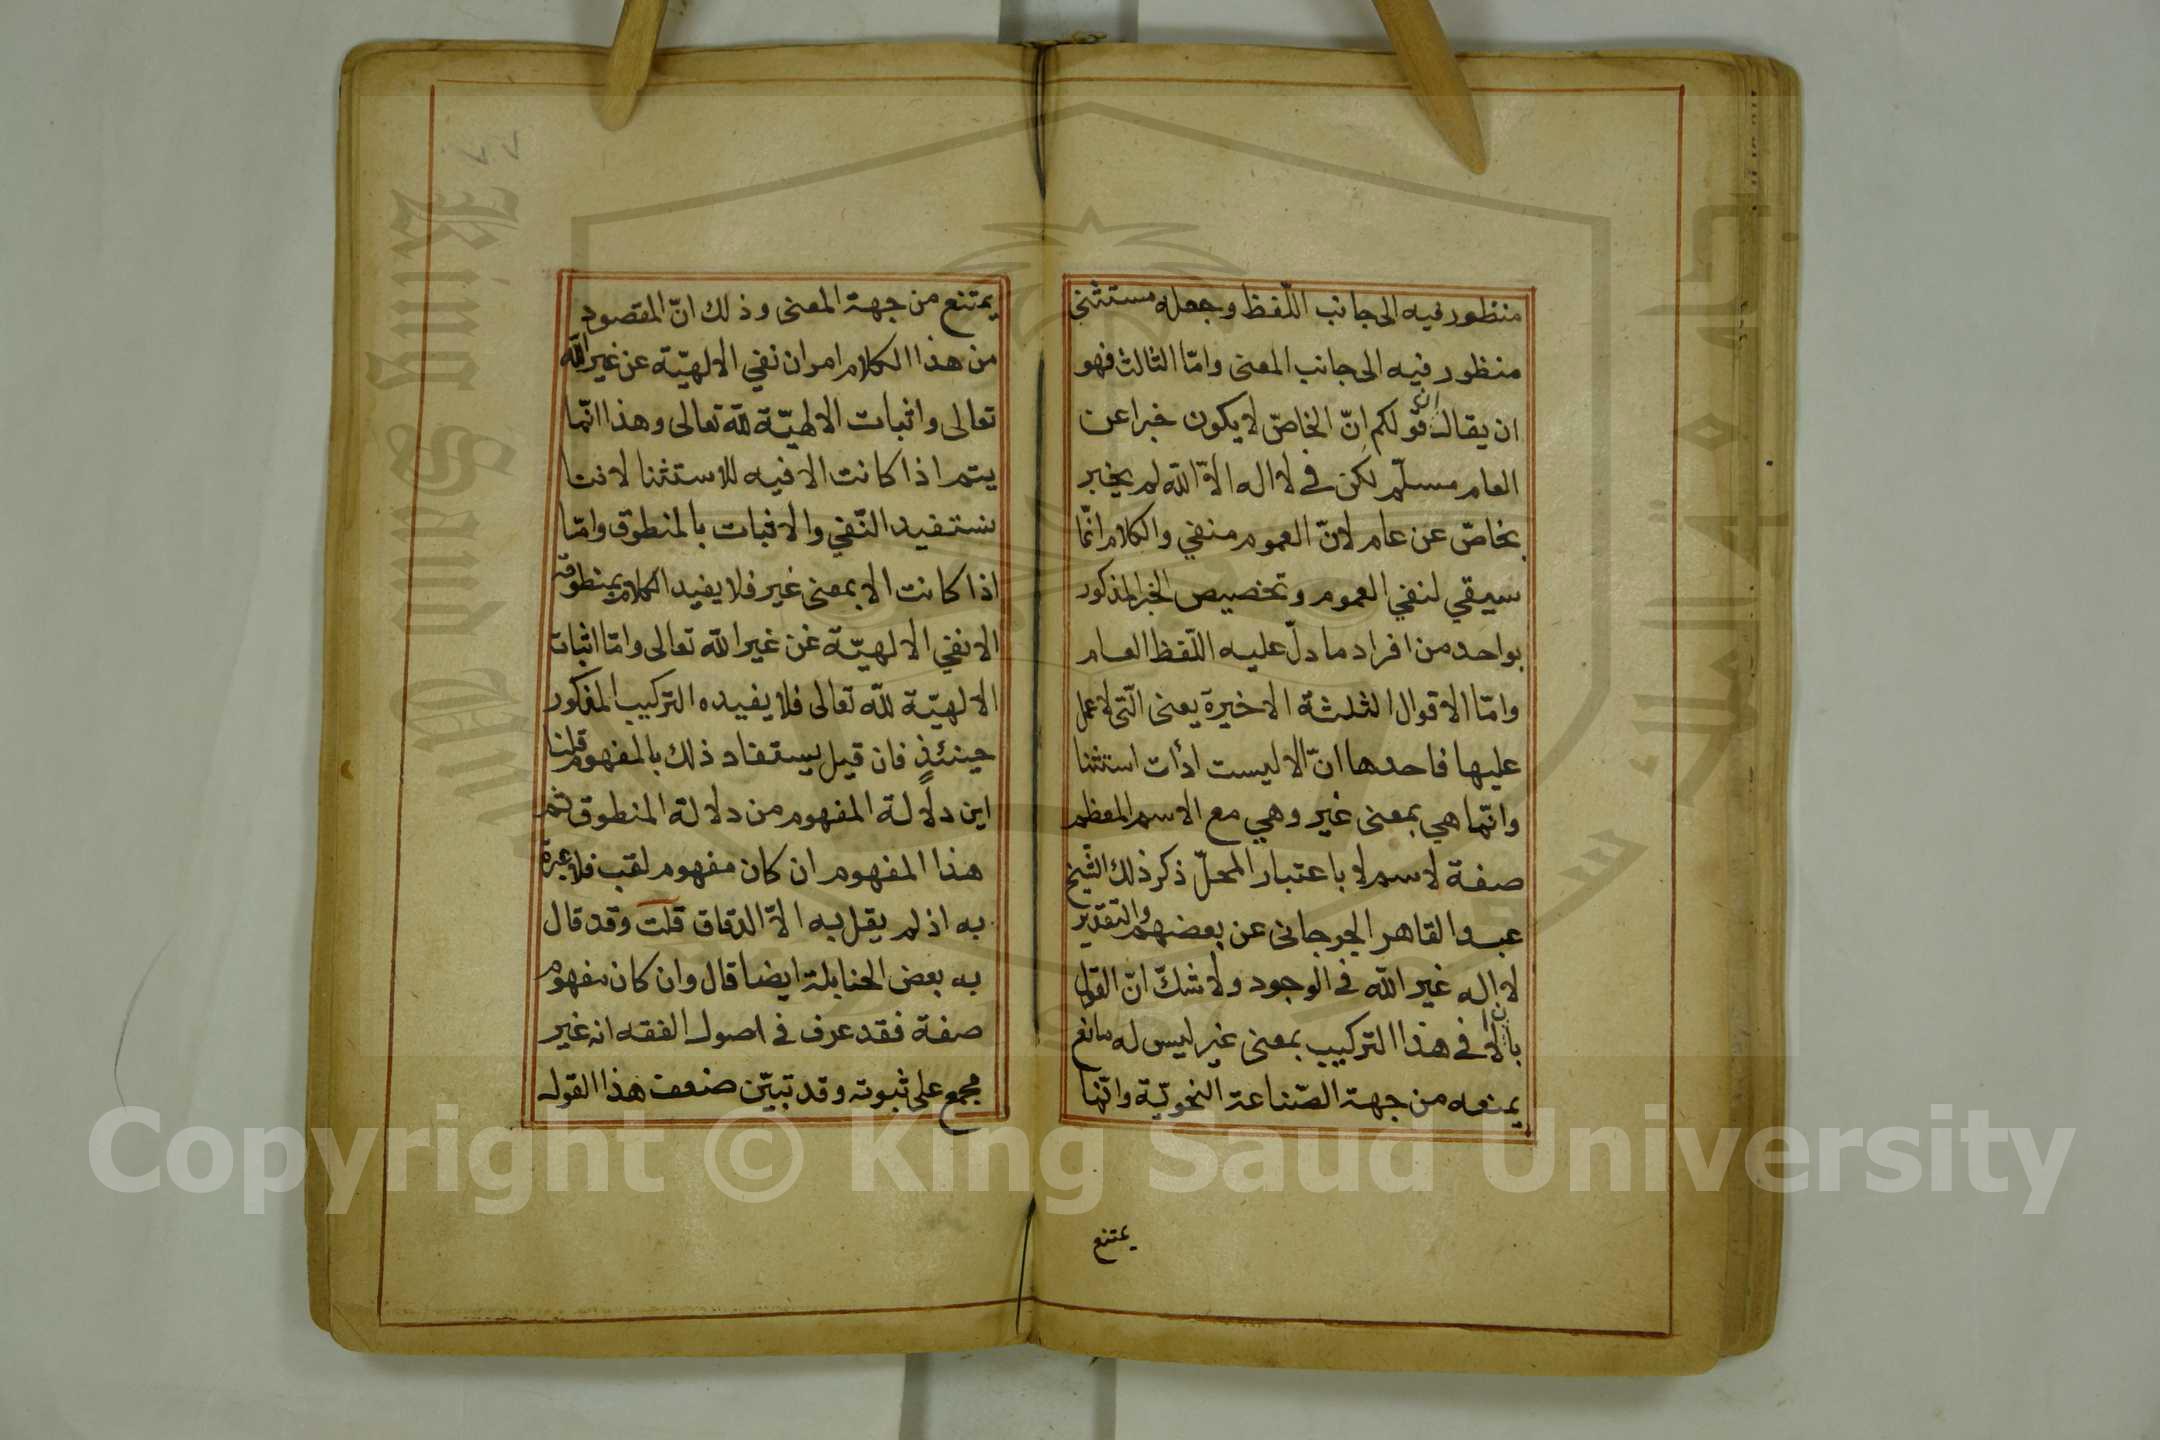 منظور فيه الى جانب اللّفظ وجعله مستثنى
منظور فيه الى جانب المعنى وامّا الثالث فهو
ان يقال قولكم انّ الخاصّ لا يكون خبرا عن
العام مسلّم لكن في لا اله الاّ اللّه لم يخبر
بخاصّ عن عام لانّ العموم منفي والكلام انّما
سيقي لنفي العموم وتخصيص الخبر المذكور
بواحد من افراد ما دلّ عليه اللّفظ العام
وامّا الاقوال الثلثة الاخيرة يعنى الّتى لا عمل
عليها فاحدها انّ الا ليست أدات استثنا
وانّما هي بمعنى غير وهي مع الاسم المعظم
صفة لاسم لا باعتبار المحلّ ذكر ذلك الشّيخ
عبد القاهر الجرجانى عن بعضهم والتقدير
لا اله غير اللّه في الوجود ولا شكّ انّ القول
بان الا في هذا التركيب بمعنى غير ليس له مانع
يمنعه من جهة الصّناعة النحويّة وانّما
يمتنع
يمتنع من جهة المعنى وذلك انّ المقصود
من هذا الكلام امران نفي الالهيّة عن غير اللّه
تعالى واثبات الالهيّة للّه تعالى وهذا انّما
يتم اذا كانت الا فيه للاستثنا لانتا
نستفيد النّفي والاثبات بالمنطوق وامّا
اذا كانت الا بمعنى غير فلا يفيد الكلام بمنطوقه
الا نفي الالهيّة عن غير اللّه تعالى وامّا اثبات
الالهيّة للّه تعالى فلا يفيده التركيب المذكور
حينئذٍ فان قيل يستفاد ذلك بالمفهوم قلنا
اين دلالة المفهوم من دلالة المنطوق ثم
هذا المفهوم ان كان مفهوم لقب فلا عبرة
به اذ لم يقل به الاّ الدقاق قلت وقد قال
به بعض الحنابلة ايضا قال وان كان مفهوم
صفة فقد عرف في اصول الفقه انه غير
مجمع على ثبوته وقد تبيّن ضعف هذا القول
Copyright © King Saud University
King Saud University